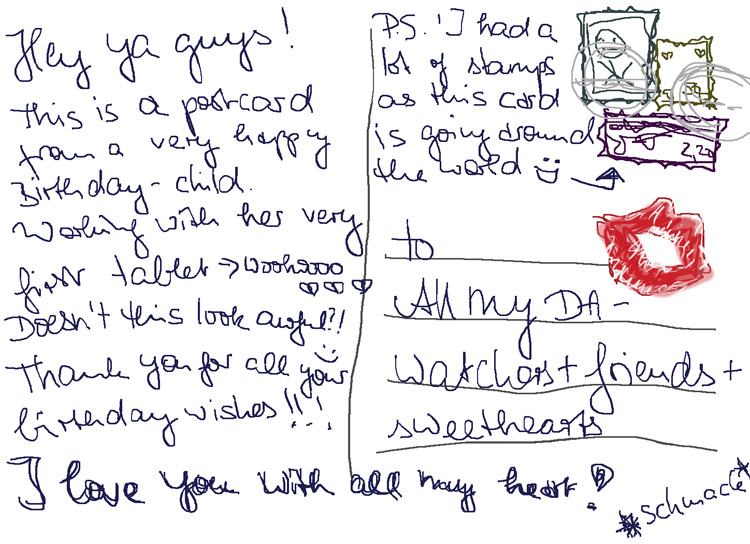 Hey ya guys!
This is a postcard
from a very happy
Birthday-child.
Working with her very
first tablet → woohoooo
Doesn't this look awful?!
Thank you for all your
birthday wishes!!!
I love you with all my heart!
P.S. I had a
lot of stamps
as this card
is going around
the world
2,20
to
All my DA-
watchers + friends +
sweethearts
*schmack*